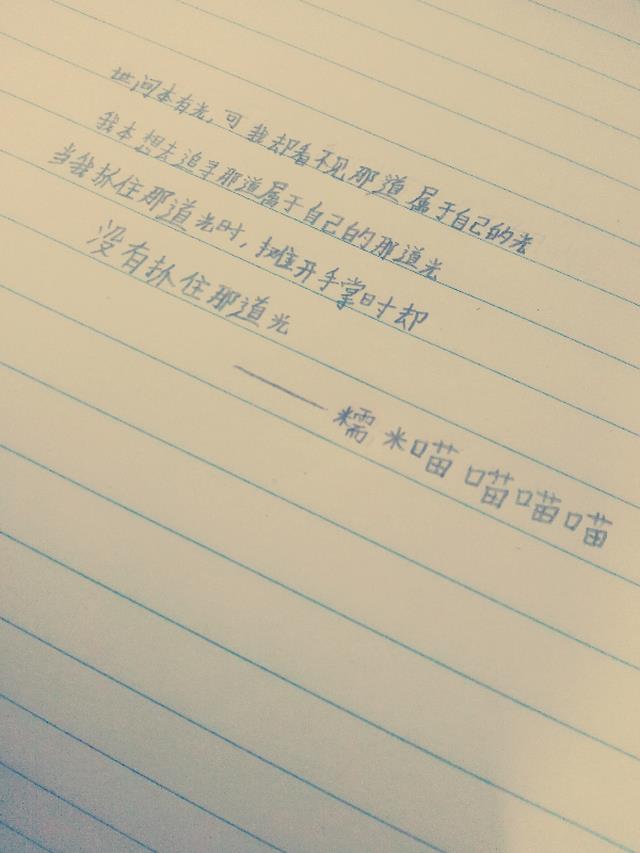 世间本有光,可我却看不见那道属于自己的光
我本想去追寻那道属于自己的那道光
当我抓住那道光时,摊开手掌时却
没有抓住那道光
——糯米喵喵喵喵